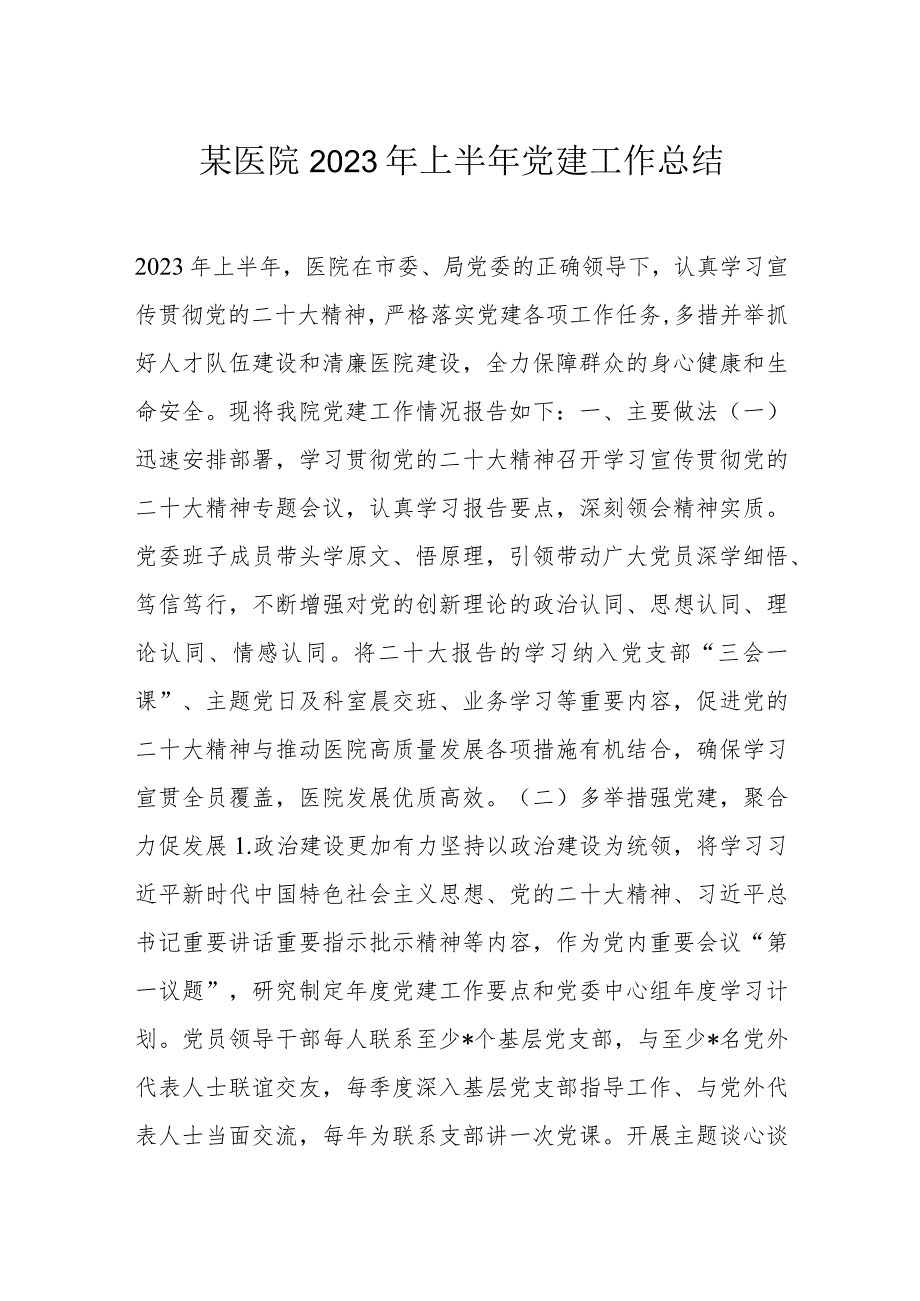 某医院2023年上半年党建工作总结
2023年上半年，医院在市委、局党委的正确领导下，认真学习宣
传贯彻党的二十大精神，严格落实党建各项工作任务,多措并举抓
好人才队伍建设和清廉医院建设，全力保障群众的身心健康和生
命安全。现将我院党建工作情况报告如下：一、主要做法（一）
迅速安排部署，学习贯彻党的二十大精神召开学习宣传贯彻党的
二十大精神专题会议，认真学习报告要点，深刻领会精神实质。
党委班子成员带头学原文、悟原理，引领带动广大党员深学细悟、
笃信笃行，不断增强对党的创新理论的政治认同、思想认同、理
论认同、情感认同。将二十大报告的学习纳入党支部“三会一
课”、主题党日及科室晨交班、业务学习等重要内容，促进党的
二十大精神与推动医院高质量发展各项措施有机结合，确保学习
宣贯全员覆盖，医院发展优质高效。（二）多举措强党建，聚合
力促发展1.政治建设更加有力坚持以政治建设为统领，将学习习
近平新时代中国特色社会主义思想、党的二十大精神、习近平总
书记重要讲话重要指示批示精神等内容，作为党内重要会议“第
一议题”，研究制定年度党建工作要点和党委中心组年度学习计
划。党员领导干部每人联系至少*个基层党支部，与至少*名党外
代表人士联谊交友，每季度深入基层党支部指导工作、与党外代
表人士当面交流，每年为联系支部讲一次党课。开展主题谈心谈